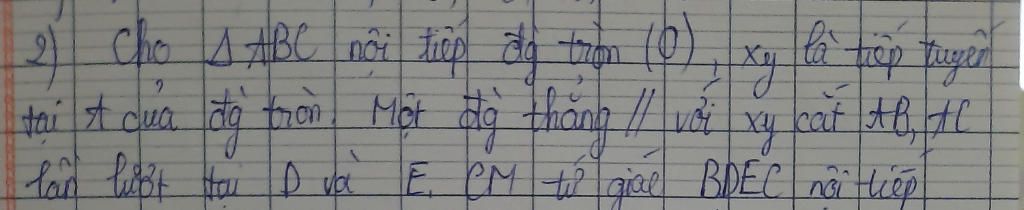 2) Cho Δ ABC nội tiếp đg tròn (O), xy là tiếp tuyến
tại A của đg tròn. Một đg thẳng // với xy cắt AB, AC
lần lượt tại D và E. CM tứ giác BDEC nội tiếp